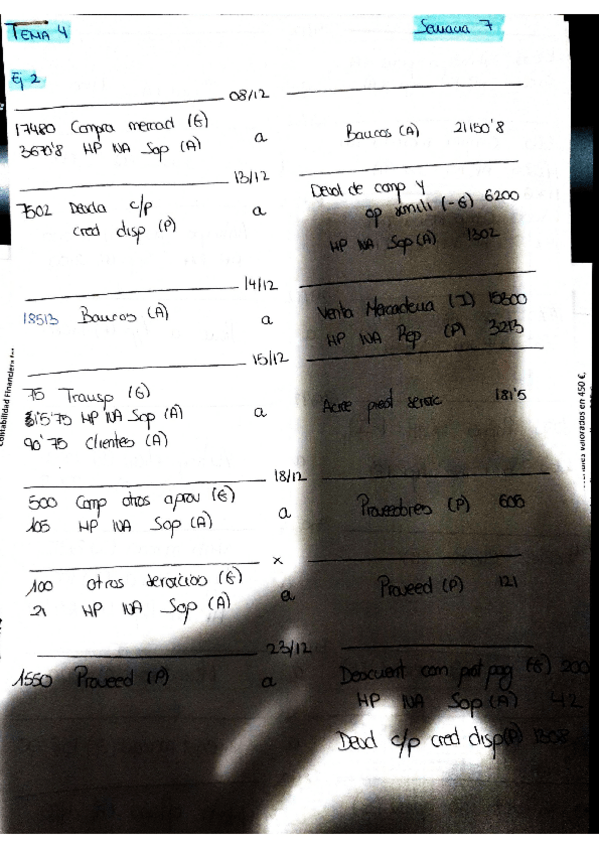 TEMA 4
Semana 7
Ej 2
08/12
17480 Compra mercad (G)
3670'8 HP IVA Sop (A)
a
Bancos (A) 21150'8
13/12
7502 Deuda c/p
cred disp (P)
a
Devol de comp y
op simili (-G) 6200
HP IVA Sop (A) 1302
14/12
18513 Bancos (A)
a
Venta Mercaderia (I) 15300
HP IVA Rep (P) 3213
15/12
75 Transp (G)
15'75 HP IVA Sop (A)
90'75 Clientes (A)
a
Acree prest servic 181'5
18/12
500 Comp otros aprov (G)
105 HP IVA Sop (A)
a
Proveedores (P) 605
x
100 otros servicios (G)
21 HP IVA Sop (A)
a
Proveed (P) 121
23/12
1550 Proveed (P)
a
Descuent com prot pag (G) 200
HP IVA Sop (A) 42
Deud c/p cred disp (P) 1308
Contabilidad Financiera
valorados en 450 €.